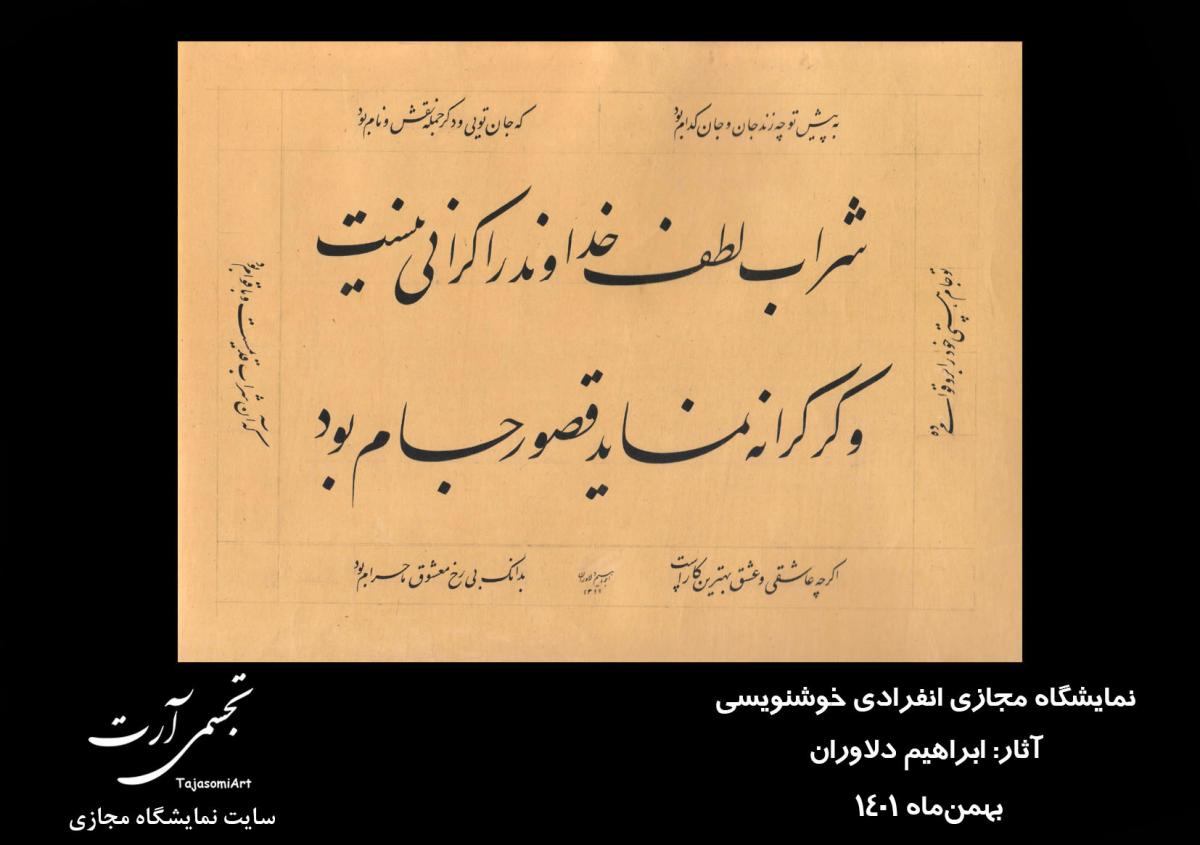 به پیش تو چه زند جان و جان کدام بود
که جان تویی و دگر جمله نقش و نام بود
شراب لطف خداوند را کرانی نیست
وگر کرانه نماید قصور جام بود
تو جام هستی خود را برو قوامی ده
که آن شراب قدیمست و با قوام بود
اگرچه عاشقی و عشق بهترین کار است
بدانک بی رخ معشوق ما حرام بود
ابراهیم دلاوران
نمایشگاه مجازی انفرادی خوشنویسی
آثار: ابراهیم دلاوران
بهمن‌ماه ۱۴۰۱
تجسمی آرت
TajasomiArt
سایت نمایشگاه مجازی